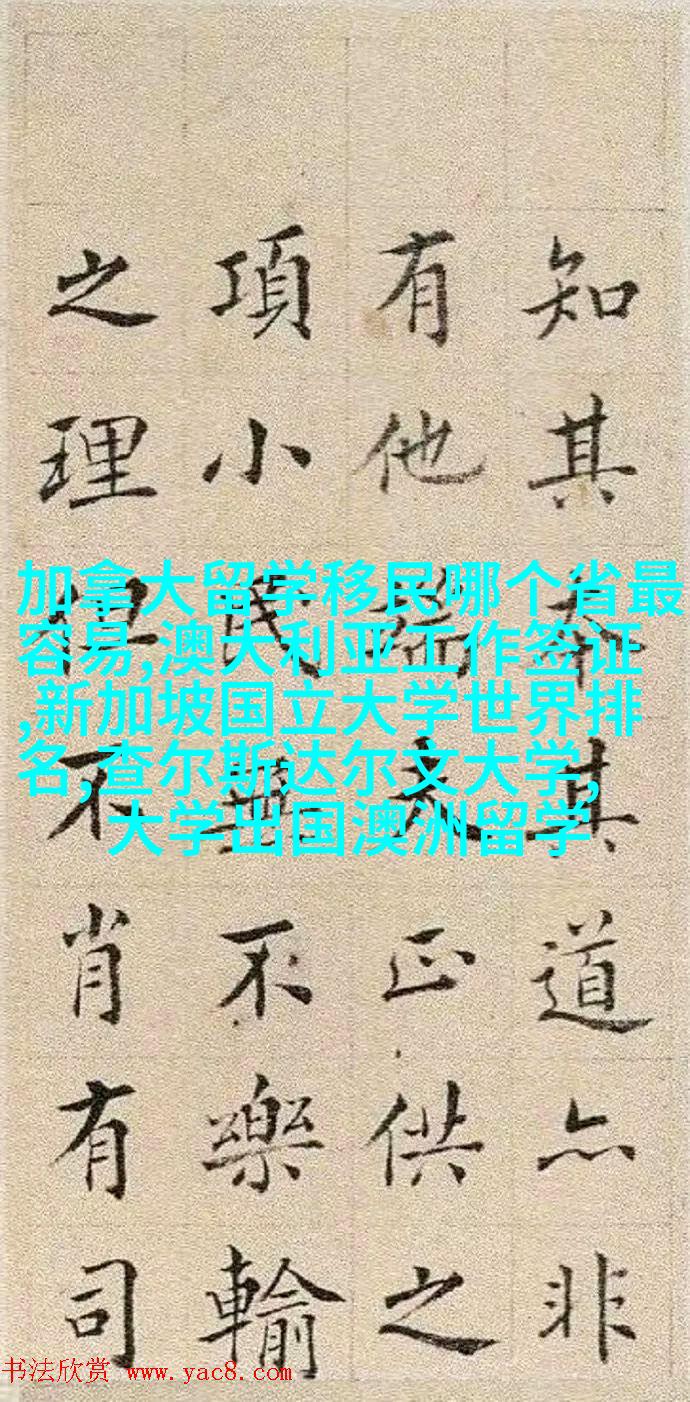 知其其道亦非
有他端夫正供之
項小民無不樂輸
之理但不肖有司
加拿大留学移民哪个省最
容易,澳大利亚工作签证
,新加坡国立大学世界排
名,查尔斯达尔文大学,
大学出国澳洲留学
书法欣赏 www.yac8.com